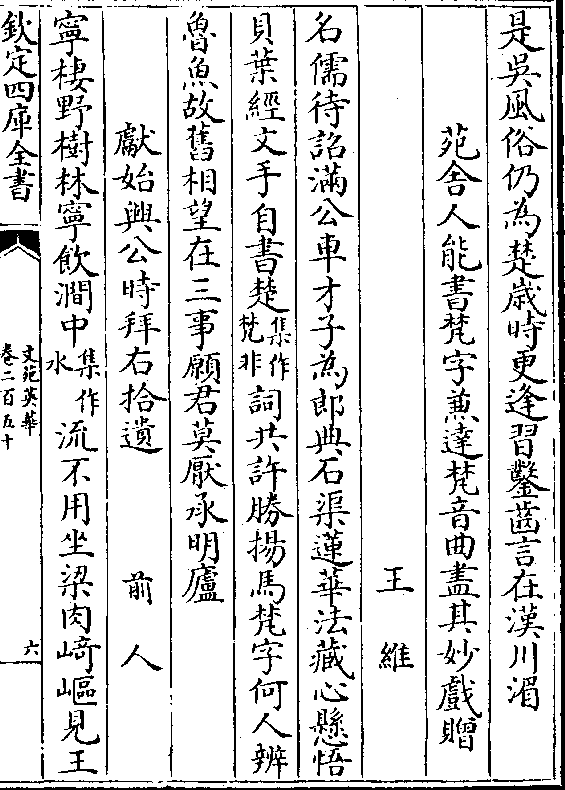 是吳風俗仍為楚歲時更逢習鑿齒言在漢川湄
苑舍人能書梵字兼達梵音曲盡其妙戲贈
王維
名儒待詔滿公車才子為郎典石渠蓮華法藏心懸悟
貝葉經文手自書楚集作梵非詞共許勝揚馬梵字何人辨
魯魚故舊相望在三事願君莫厭承明廬
獻始興公時拜右拾遺 前人
寧棲野樹林寧飲澗中集作水流不用坐梁肉崎嶇見王
欽定四庫全書
文苑英華
卷二百五十
六